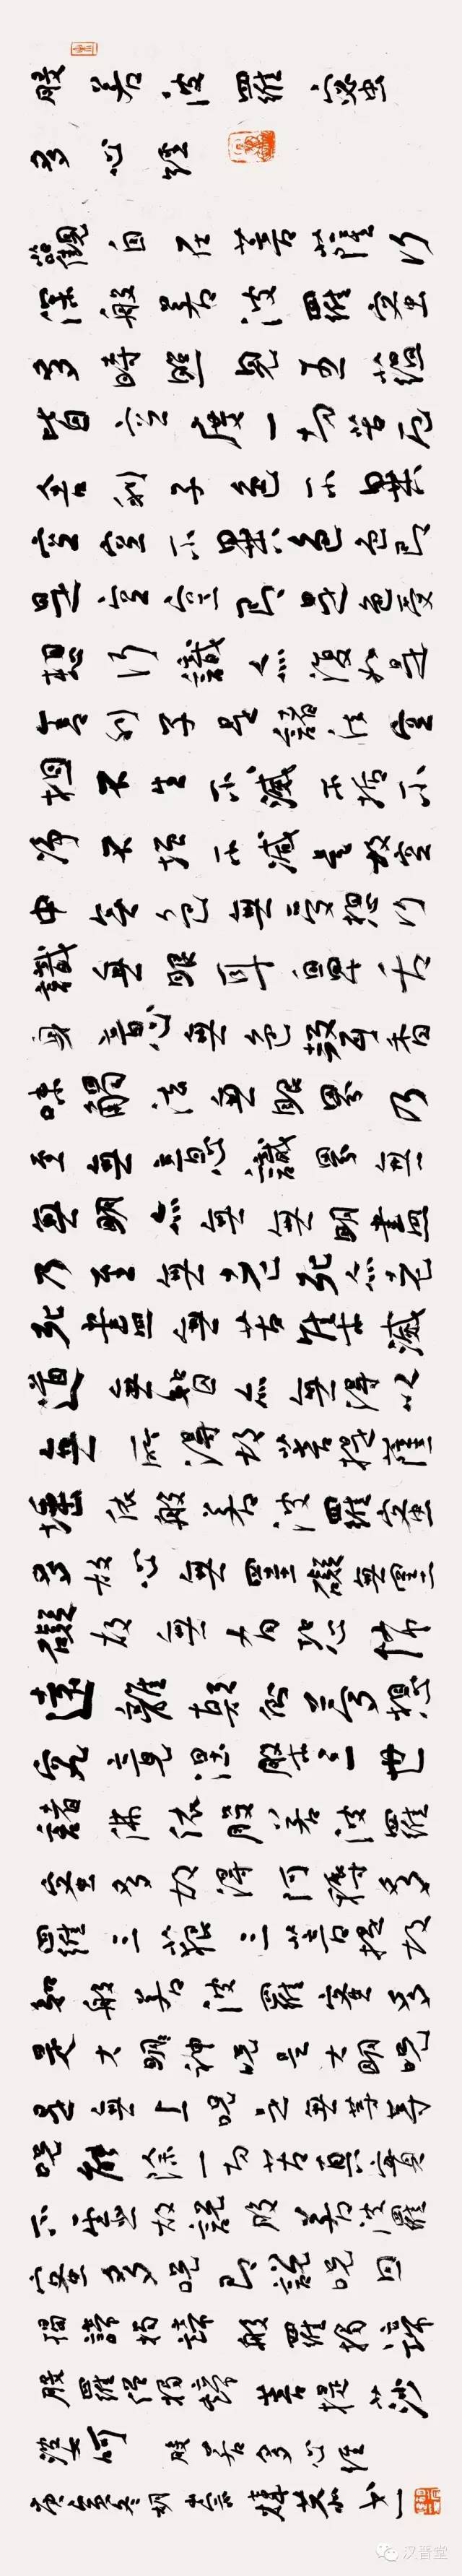 般若波羅蜜
多心經
觀自在菩薩行
深般若波羅蜜
多時照見五蘊
皆空度一切苦厄
舍利子色不異
空空不異色色即
是空空即是色受
想行識亦復如是
舍利子是諸法空
相不生不滅不垢不
淨不增不減是故空
中無色無受想行
識無眼耳鼻舌
身意無色聲香
味觸法無眼界乃
至無意識界無
無明亦無無明盡
乃至無老死亦無老
死盡無苦集滅
道無智亦無得以
無所得故菩提薩
埵依般若波羅蜜
多故心無罣礙無罣
礙故無有恐怖
遠離顛倒夢想
究竟涅槃三世
諸佛依般若波羅
蜜多故得阿耨多
羅三藐三菩提故
知般若波羅蜜多
是大明神咒是大明咒
是無上咒是無等等
咒能除一切苦真實
不虛故說般若波羅
蜜多咒即說咒曰
揭諦揭諦般羅揭諦
般羅僧揭諦菩提莎
婆訶 般若多心經
汉晋堂